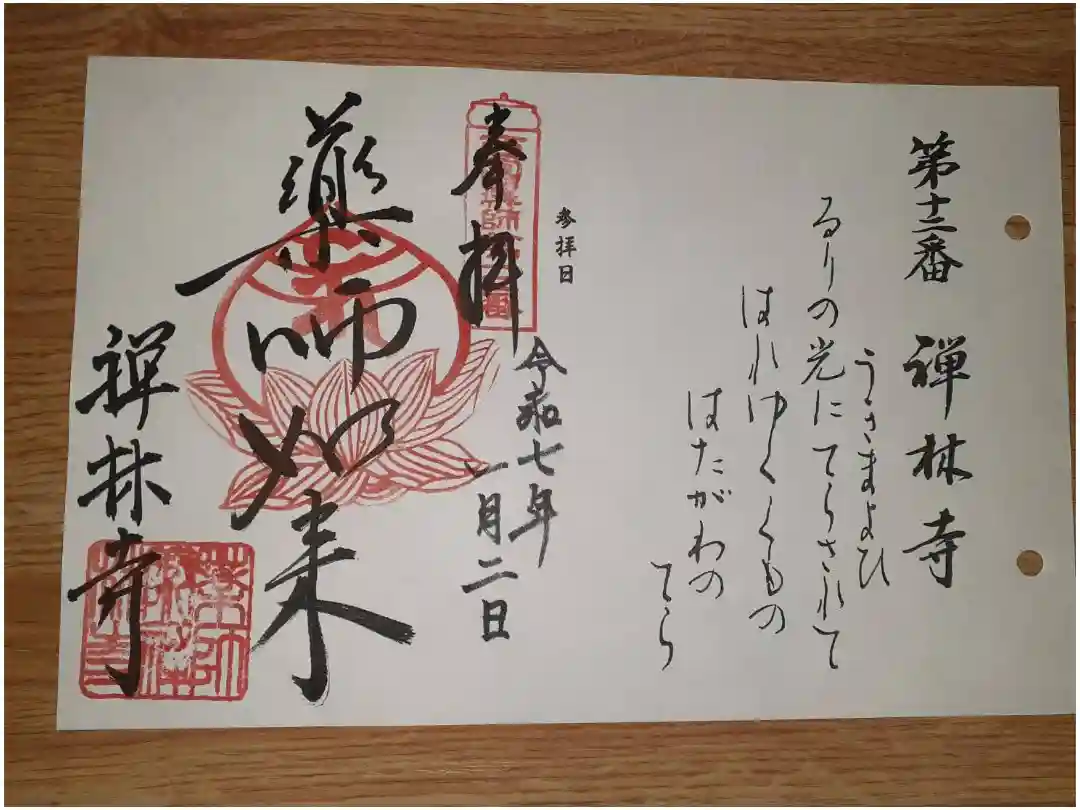 第十二番 禅林寺
うきまよひ
るりの光にてらされて
はれゆくくもの
はたがわの
てら
参拝日
奉拝
令和七年
一月二日
薬師如来
禅林寺